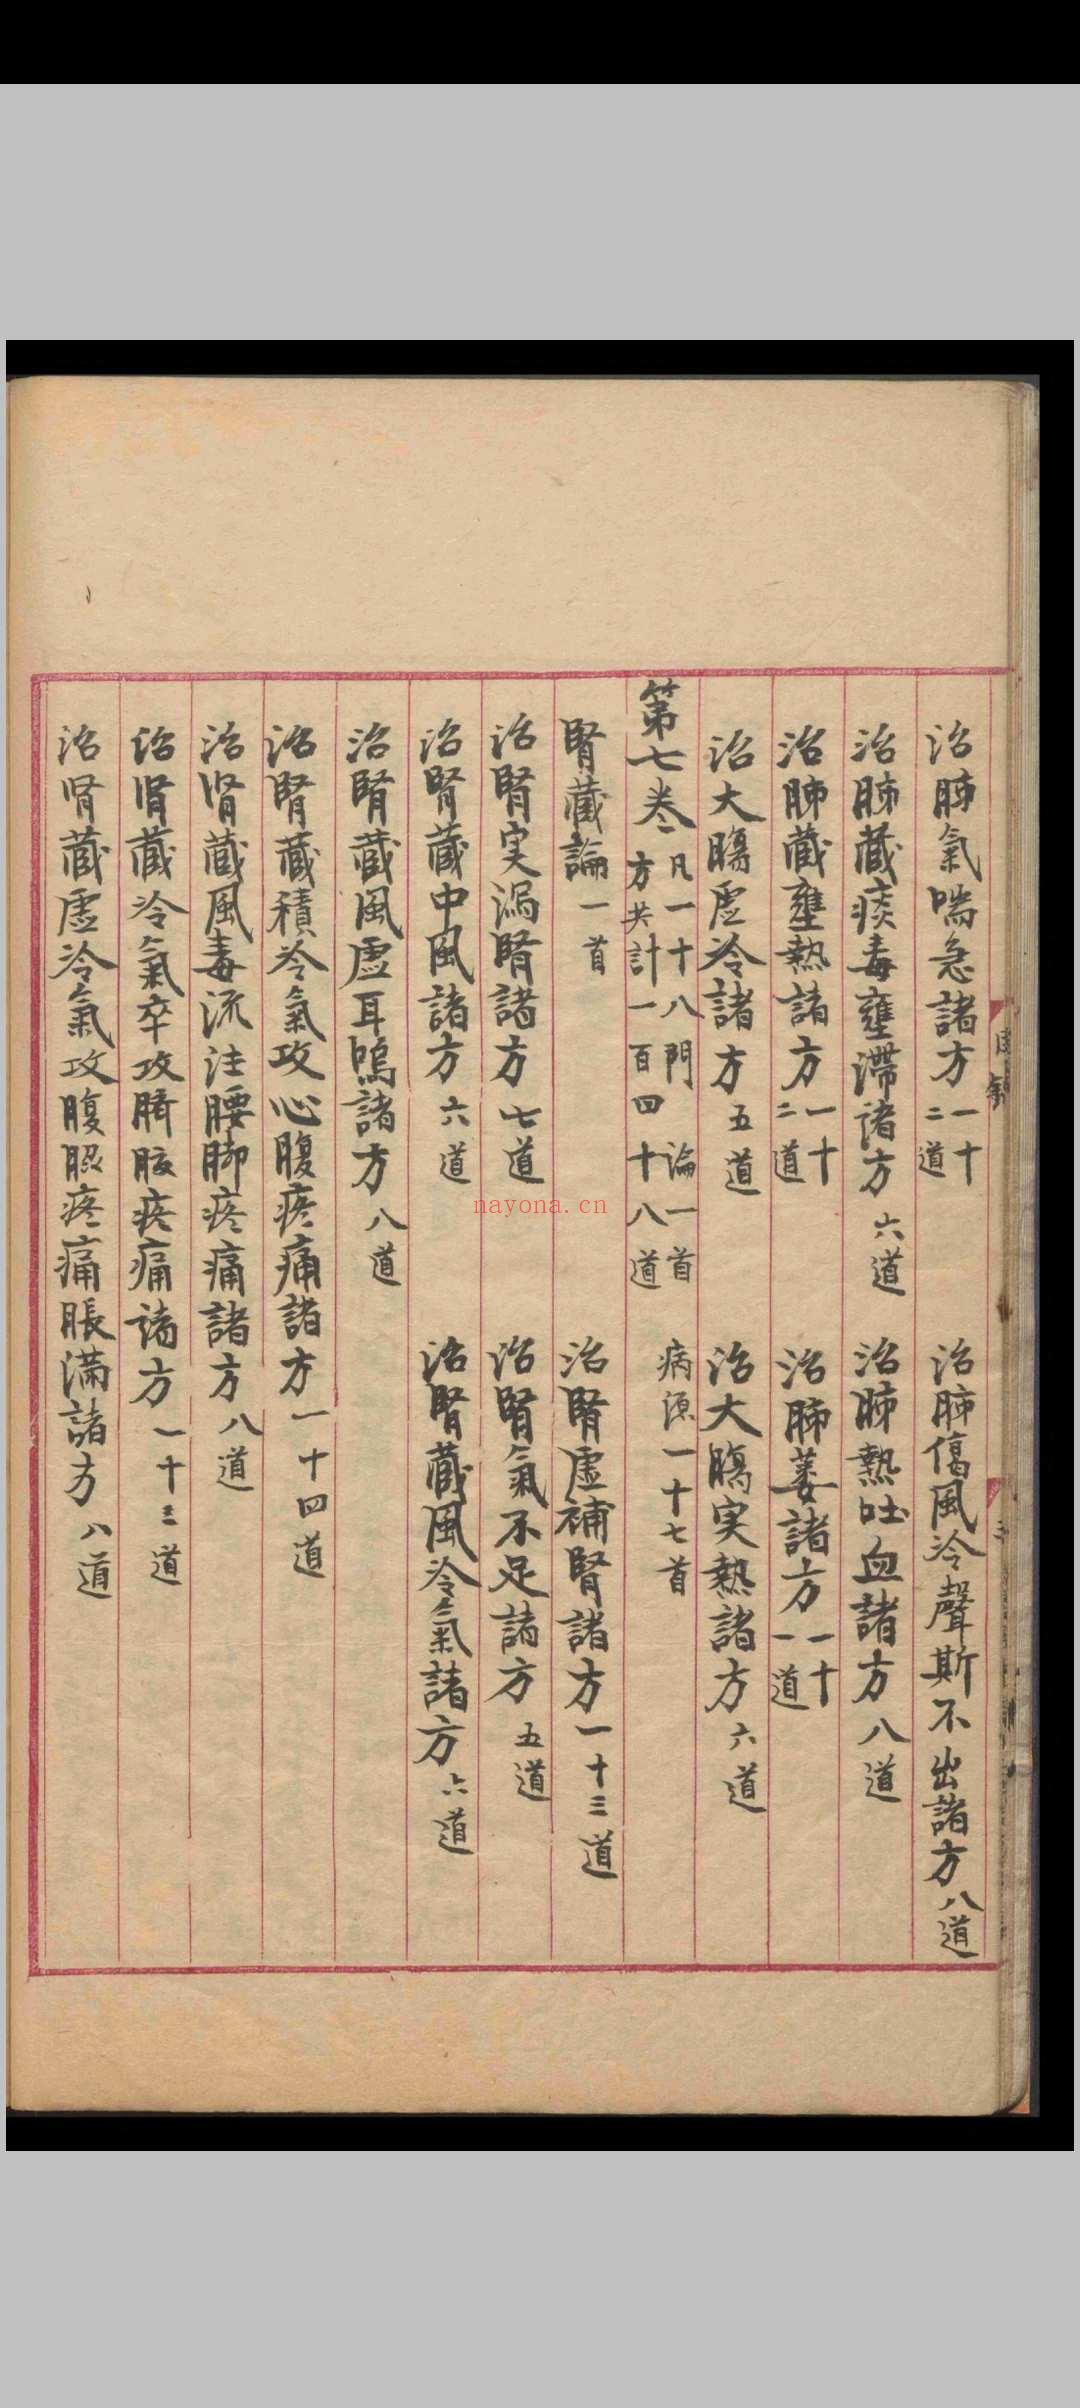 治肺氣喘急諸方一十二道
治肺傷風冷聲斯不出諸方八道
治肺蔵痰毒壅滯諸方六道
治肺熱吐血諸方八道
治肺蔵壅熱諸方一十二道
治肺萎諸方一十一道
治大腸虛冷諸方五道
治大腸実熱諸方六道
第七卷凡一十八門論一首病源一十七首
方共計一百四十八道
腎蔵論一首
治腎虛補腎諸方一十三道
治腎実瀉腎諸方七道
治腎氣不足諸方五道
治腎蔵中風諸方六道
治腎蔵風冷氣諸方六道
治腎蔵風虛耳鳴諸方八道
治腎蔵積冷氣攻心腹疼痛諸方一十四道
治肾蔵風毒流注腰脚疼痛諸方八道
治肾蔵冷氣卒攻臍腹疼痛諸方一十三道
治肾蔵虛冷氣攻腹疼痛脹滿諸方八道
nayona.cn